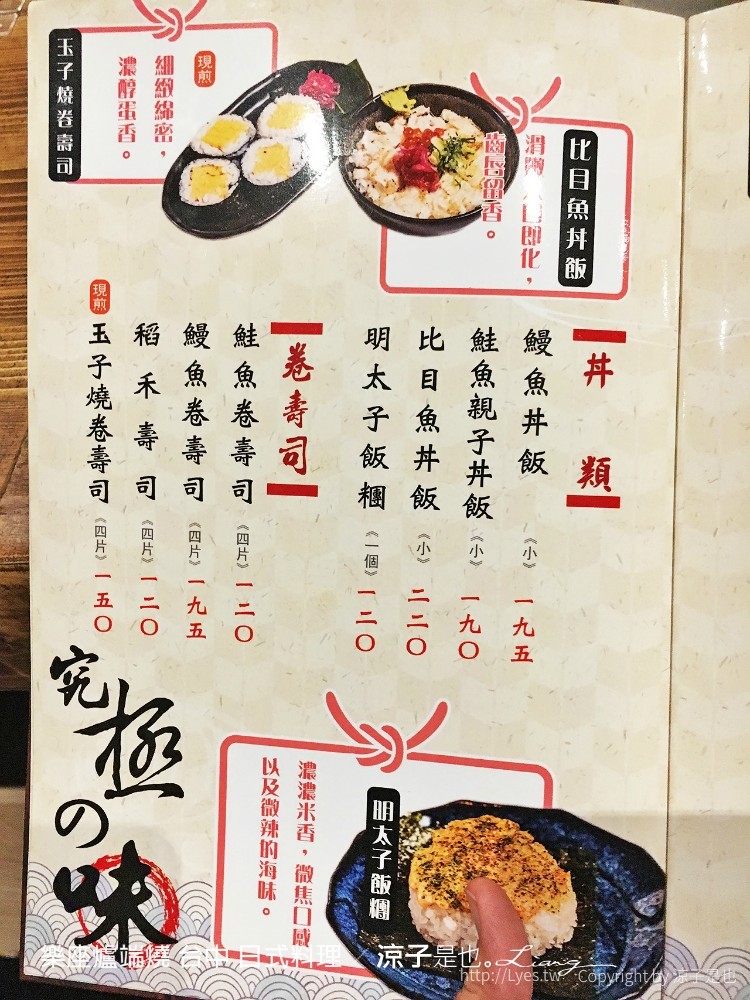 比目魚丼飯
滑嫩入口即化，
齒唇留香。
現煎
細緻綿密，
濃醇蛋香。
玉子燒卷壽司
丼 類
鰻魚丼飯《小》一九五
鮭魚親子丼飯《小》一九〇
比目魚丼飯《小》二二〇
明太子飯糰《一個》一二〇
卷壽司
鮭魚卷壽司《四片》一二〇
鰻魚卷壽司《四片》一九五
稻禾壽司《四片》一二〇
現煎 玉子燒卷壽司《四片》一五〇
究極の味
明太子飯糰
濃濃米香，微焦口感
以及微辣的海味。
樂座爐端燒 台中 日式料理 / 涼子是也。Liang
http://Lyes.tw Copyright by 涼子是也